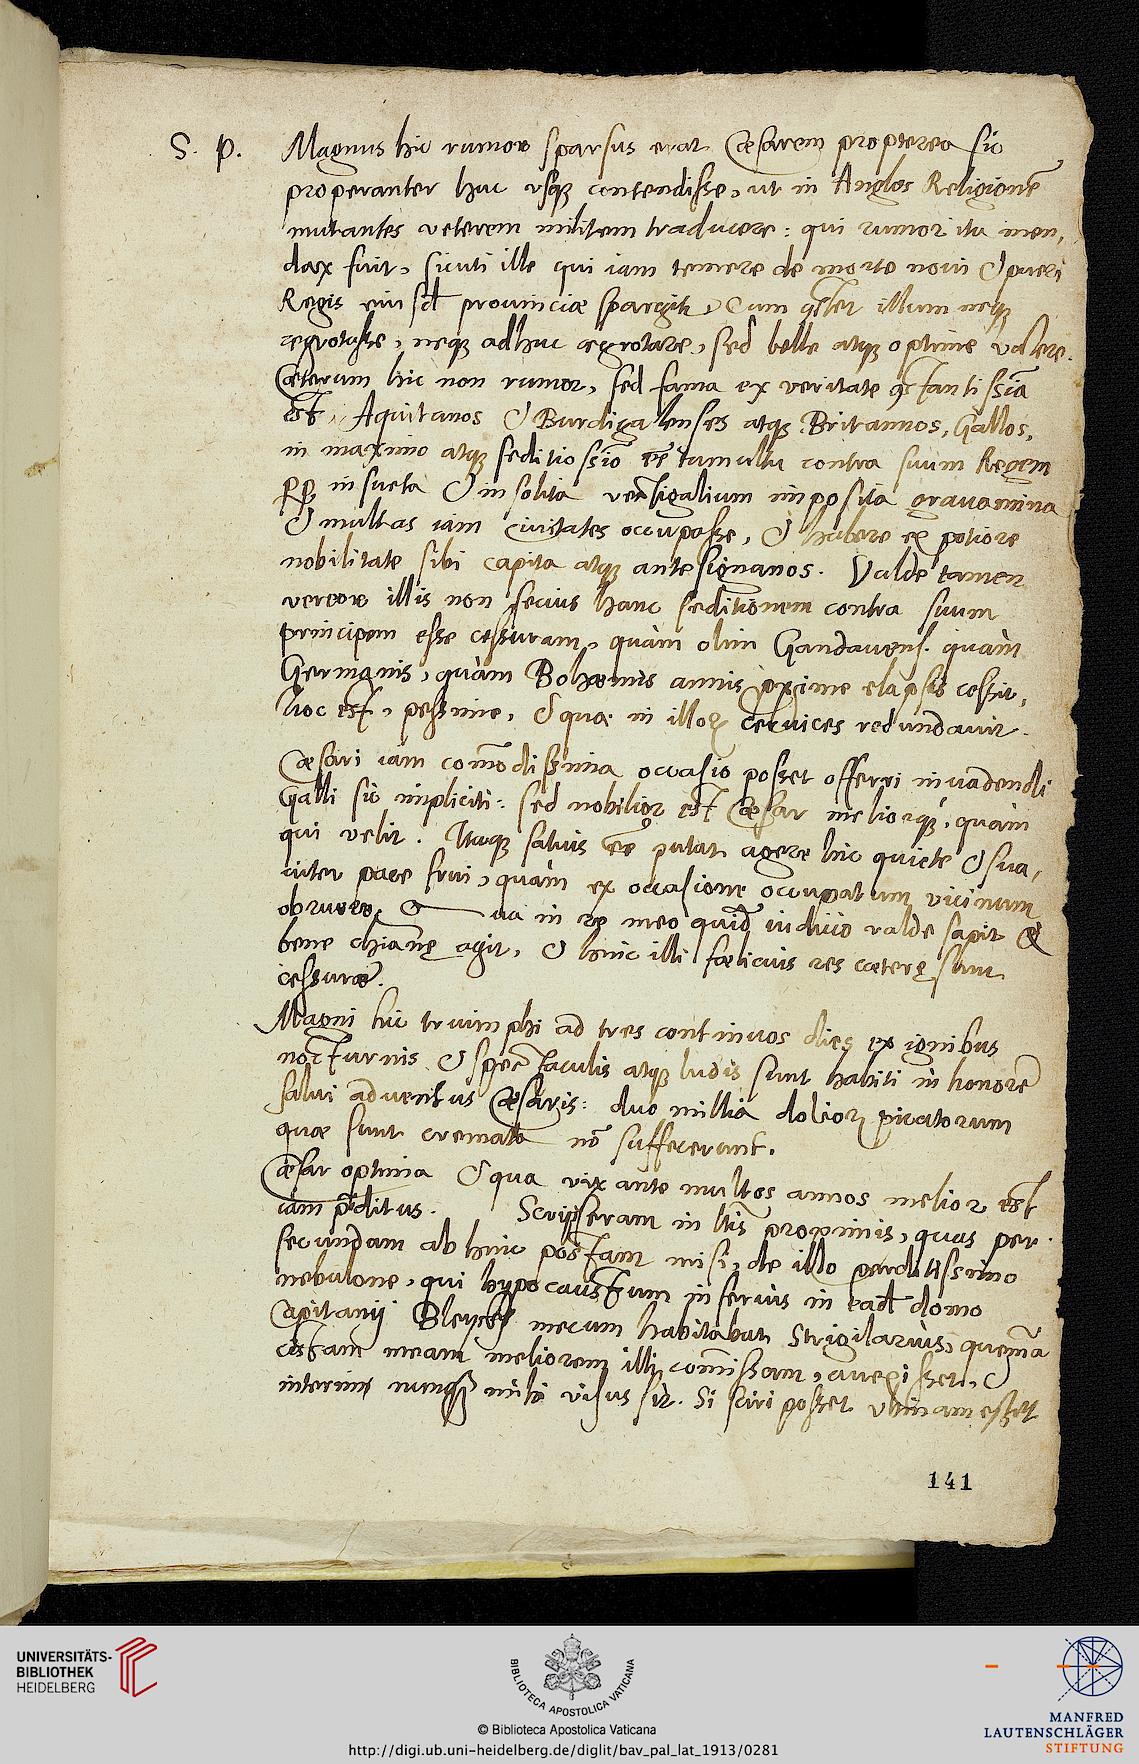 S. P. Magnus hic rumor sparsus erat Cæsarem propterea sic
properanter huc usq̨ contendisse, ut in Anglos Religionē
mutantes veterem militem traduceret: qui rumor ita men,
dax fuit, sicuti ille qui iam temere de morte novi & pueri
Regis eiusđ provinciæ spargit, Cum illum neq̨
ægrotasse, neq̨ adhuc ægrotare, sed belle atq̨ optime valere.
Cæterum hic non rumor, sed fama ex veritate ꝯstantissīa
est, Aquitanos & Burdigalenses atq̨ Britannos, Gallos,
in maximo atq̨ seditiosīo eē tumultu contra suum Regem
insueta & insolita vectigalium imposita gravamina
& multas iam civitates occupasse, & habere ex potiore
nobilitate sibi capita atq̨ antesignanos. Valde tamen
vereor illis non secius hanc seditionem contra suum
principem esse cessuram, quàm olim Gandavens. quàm
Germanis, quàm Bohæmis annis ꝓxime elapsis cessit,
hoc est, pessime, & quæ in illoꝝ cervices redundavit.
Cæsari iam com̄odissima occasio posset offerri invadendi
Galli sic impliciti: sed nobilior est Cæsar meliorq̨, quàm
qui velit. Itaq̨ satius eē putat agere hic quiete & sua,
viter pace frui, quàm ex occasione occupatum vicinum
obruere, Qua in re meo quid̄ iudicio valde sapit &
bene chianę agit, & hinc illi fœlicius res cæterę sunt
cessuræ.
Magni hic triumphi ad tres continuos dies ex ignibus
nocturnis & spectaculis atq̨ ludis sunt habiti in honorē
salvi adventus Cæsaris: duo millia dolioꝝ picatorum
quæ sunt cremata nō suffecerunt.
Cæsar optima & qua vix ante multos annos melior est
iam p̄ditus. Scripseram in ltīs proximis, quas per
secundam ab hinc postam misi, de illo perditissimo
nebulone, qui hypocaustum inferius in eađ domo
Capitanij mecum habitabat Strigilarius,
cistam meam meliorem illi com̄issam, avexisset, &
interim nunq̄ mihi visus sit. Si sciri posset ubinam esset
141
UNIVERSITÄTS-
BIBLIOTHEK
HEIDELBERG
BIBLIOTECA APOSTOLICA VATICANA
© Biblioteca Apostolica Vaticana
http://digi.ub.uni-heidelberg.de/diglit/bav_pal_lat_1913/0281
MANFRED
LAUTENSCHLÄGER
STIFTUNG